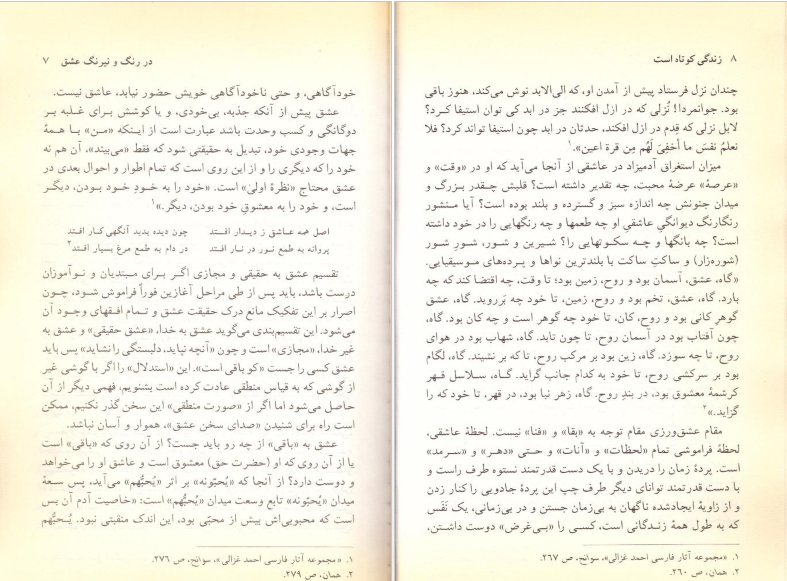 در رنگ و نیرنگ عشق ۷
خودآگاهی، و حتی ناخودآگاهی خویش حضور نیابد، عاشق نیست.
عشق پیش از آنکه جذبه، بی‌خودی، و یا کوشش برای غلبه بر
دوگانگی و کسب وحدت باشد عبارت است از اینکه «من» با همهٔ
جهات وجودی خود، تبدیل به حقیقتی شود که فقط «می‌بیند»، آن هم نه
خود را که دیگری را و از این روی است که تمام اطوار و احوال بعدی در
عشق محتاج «نظرهٔ اولیٰ» است. «خود را به خودِ خود بودن، دیگر
است، و خود را به معشوقِ خود بودن، دیگر.»۱
اصل همه عاشق ز دیدار افتد چون دیده بدید آنگهی کار افتد
در دام به طمع مرغ بسیار افتد۲ پروانه به طمع نور در نار افتد
تقسیم عشق به حقیقی و مجازی اگر برای مبتدیان و نوآموزان
درست باشد، باید پس از طی مراحل آغازین فوراً فراموش شود، چون
اصرار بر این تفکیک مانع درک حقیقت عشق و تمام افقهای وجود آن
می‌شود. این تقسیم‌بندی می‌گوید عشق به خدا، «عشق حقیقی» و عشق به
غیر خدا، «مجازی» است و چون «آنچه نپاید، دلبستگی را نشاید» پس باید
عشق کسی را جست «کو باقی است». این «استدلال» را اگر با گوشی غیر
از گوشی که به قیاس منطقی عادت کرده است بشنویم، فهمی دیگر از آن
حاصل می‌شود اما اگر از «صورت منطقی» این سخن گذر نکنیم، ممکن
است راه برای شنیدن «صدای سخن عشق»، هموار و آسان نباشد.
عشق به «باقی» از چه رو باید جست؟ از آن روی که «باقی» است
یا از آن روی که او (حضرت حق) معشوق است و عاشق او را می‌خواهد
و دوست دارد؟ از آنجا که «یُحبّونه» بر اثر «یُحبُّهم» می‌آید، پس سعهٔ
میدان «یُحبّونه» تابع وسعت میدان «یُحبُّهم» است: «خاصیت آدم آن بس
است که محبوبی‌اش بیش از محبّی بود، این اندک منقبتی نبود. یُحبُّهم
۱. «مجموعه آثار فارسی احمد غزالی»، سوانح، ص ۲۷۶.
۲. همان، ص ۲۷۹.
۸ زندگی کوتاه است
چندان نزل فرستاد پیش از آمدن او، که الی‌الابد نوش می‌کند، هنوز باقی
بود. جوانمردا! نُزلی که در ازل افکنند جز در ابد کی توان استیفا کرد؟
لابل نزلی که قِدم در ازل افکند، حدثان در ابد چون استیفا تواند کرد؟ فلا
تعلمُ نفسَ ما اُخفِیَ لَهُم مِن قرة اعین».۱
میزان استغراق آدمیزاد در عاشقی از آنجا می‌آید که او در «وقت» و
«عرصهٔ» عرضهٔ محبت، چه تقدیر داشته است؟ قلبش چقدر بزرگ و
میدان جنونش چه اندازه سبز و گسترده و بلند بوده است؟ آیا منشور
رنگارنگ دیوانگیِ عاشقیِ او چه طعمها و چه رنگهایی را در خود داشته
است؟ چه بانگها و چه سکوتهایی را؟ شیرین و شور، شورِ شور
(شوره‌زار) و ساکتِ ساکت یا بلندترین نواها و پرده‌های موسیقیایی.
«گاه، عشق، آسمان بود و روح، زمین بود؛ تا وقت، چه اقتضا کند که چه
بارد. گاه، عشق، تخم بود و روح، زمین، تا خود چه بَرروید. گاه، عشق
گوهرِ کانی بود و روح، کان، تا خود چه گوهر است و چه کان بود. گاه،
چون آفتاب بود در آسمان روح، تا چون تابد. گاه، شهاب بود در هوای
روح، تا چه سوزد. گاه، زین بود بر مرکب روح، تا که بر نشیند. گاه، لگام
بود بر سرکشی روح، تا خود به کدام جانب گراید. گاه، سلاسل قهر
کرشمهٔ معشوق بود، در بندِ روح. گاه، زهر نبا بود، در قهر، تا خود که را
گزاید.»۲
مقام عشق‌ورزی مقام توجه به «بقا» و «فنا» نیست. لحظهٔ عاشقی،
لحظهٔ فراموشی تمام «لحظات» و «آنات» و حتی «دهر» و «سرمد»
است. پردهٔ زمان را دریدن و با یک دست قدرتمند نستوه طرف راست و
با دست قدرتمند توانای دیگر طرف چپ این پردهٔ جادویی را کنار زدن
و از زاویهٔ ایجادشده ناگهان به بی‌زمان جستن و در بی‌زمانی، یک نَفَس
که به طول همهٔ زندگانی است، کسی را «بی‌غرض» دوست داشتن،
۱. «مجموعه آثار فارسی احمد غزالی»، سوانح، ص ۲۶۷.
۲. همان، ص ۲۶۰.